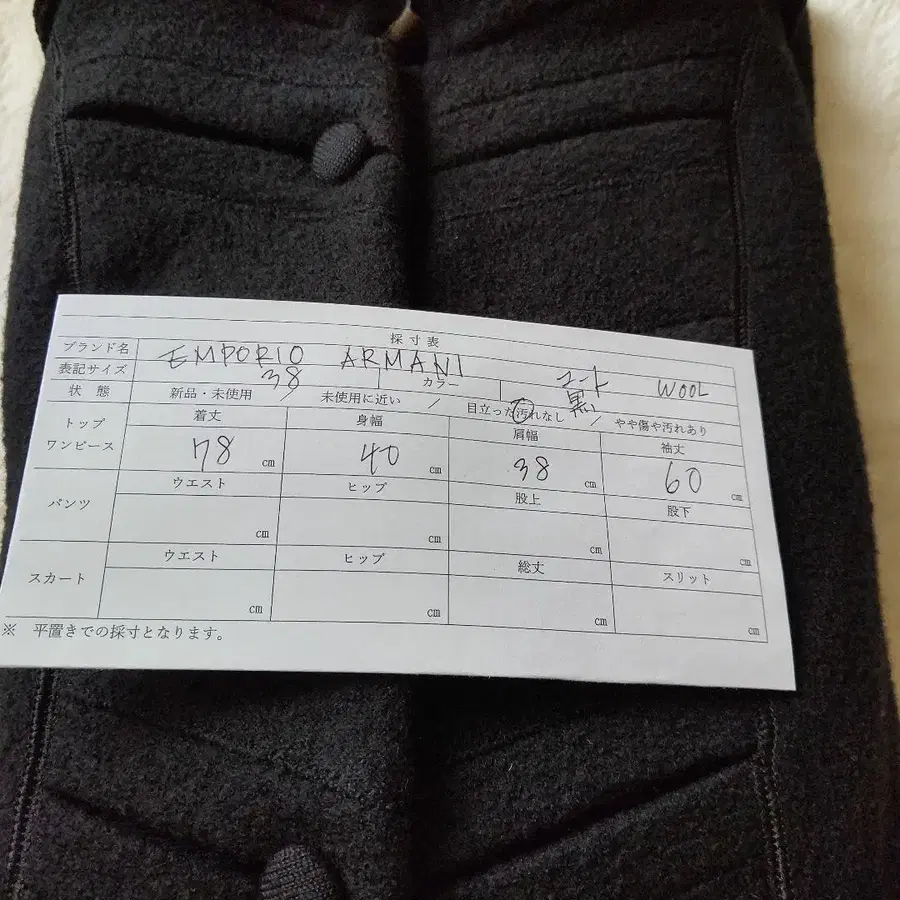 採寸表
ブランド名 EMPORIO ARMANI コート WOOL
表記サイズ 38 カラー 黒
状態 新品・未使用 / 未使用に近い / 目立った汚れなし / やや傷や汚れあり
トップ ワンピース 着丈 身幅 肩幅 袖丈
78 cm 40 cm 38 cm 60 cm
パンツ ウエスト ヒップ 股上 股下
cm cm cm cm
スカート ウエスト ヒップ 総丈 スリット
cm cm cm cm
※ 平置きでの採寸となります。